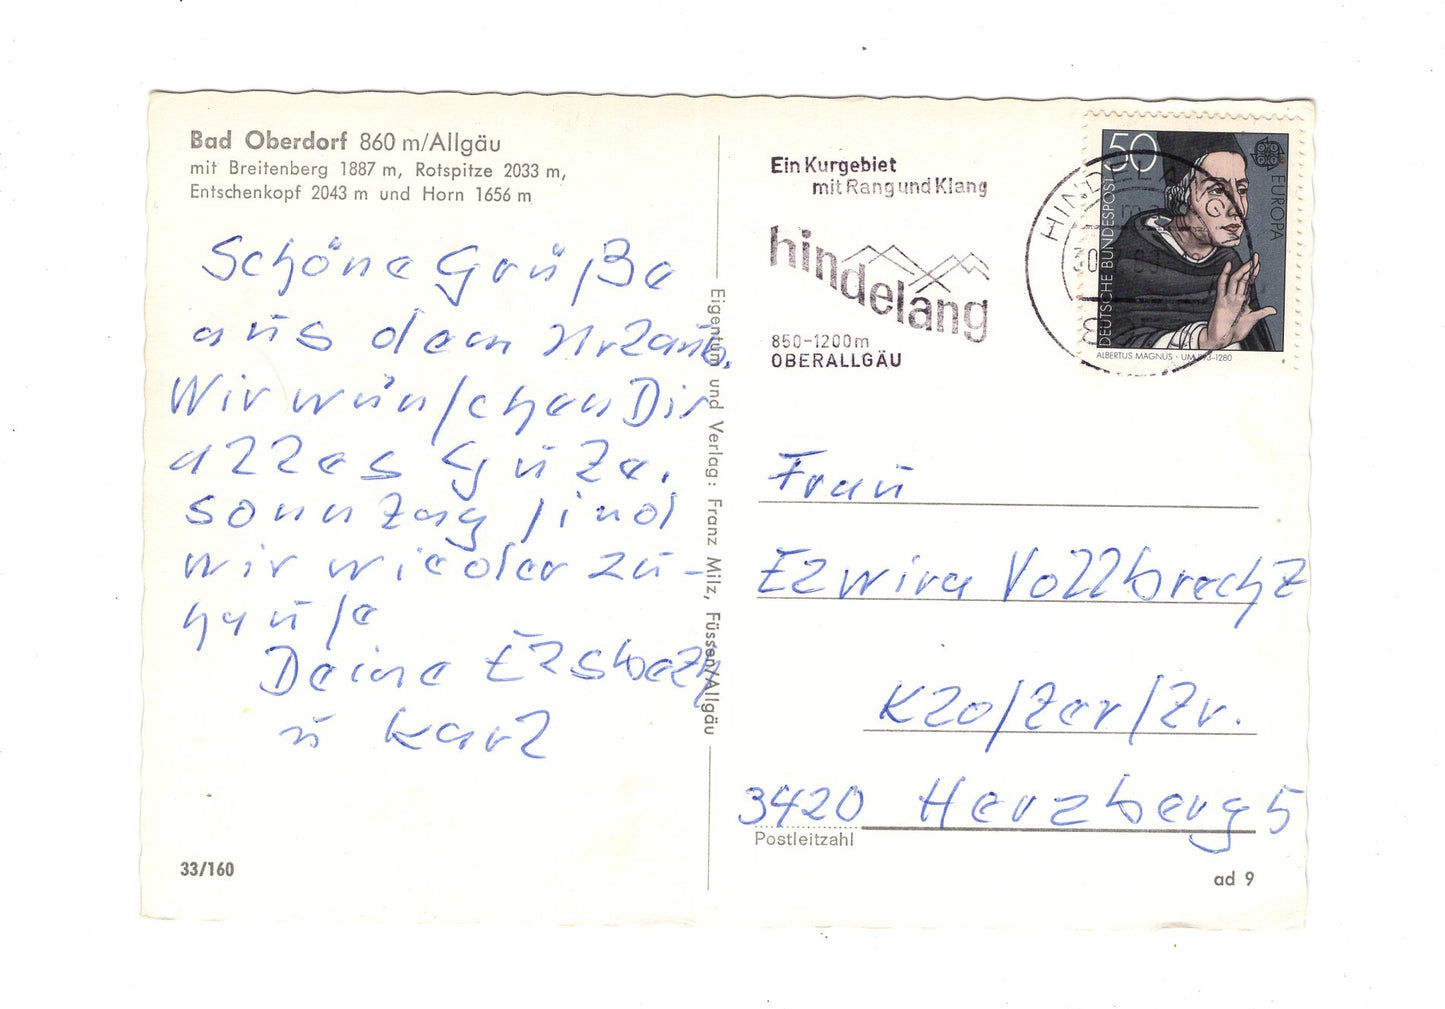 Bad Oberdorf 860 m/Allgäu
mit Breitenberg 1887 m, Rotspitze 2033 m,
Entschenkopf 2043 m und Horn 1656 m
Schöne Grüße
aus dem Urlaub.
Wir wünschen Dir
alles Gute.
Sonntag sind
wir wieder zu-
hause
Deine Elsbeth
u Karl
33/160
Eigentum und Verlag: Franz Milz, Füssen/Allgäu
Ein Kurgebiet
mit Rang und Klang
hindelang
850-1200m
OBERALLGÄU
HINDELANG
50
EUROPA
DEUTSCHE BUNDESPOST
ALBERTUS MAGNUS · UM 1193-1280
Frau
Elwira Vollbrecht
Klosterstr.
3420 Herzberg 5
Postleitzahl
ad 9